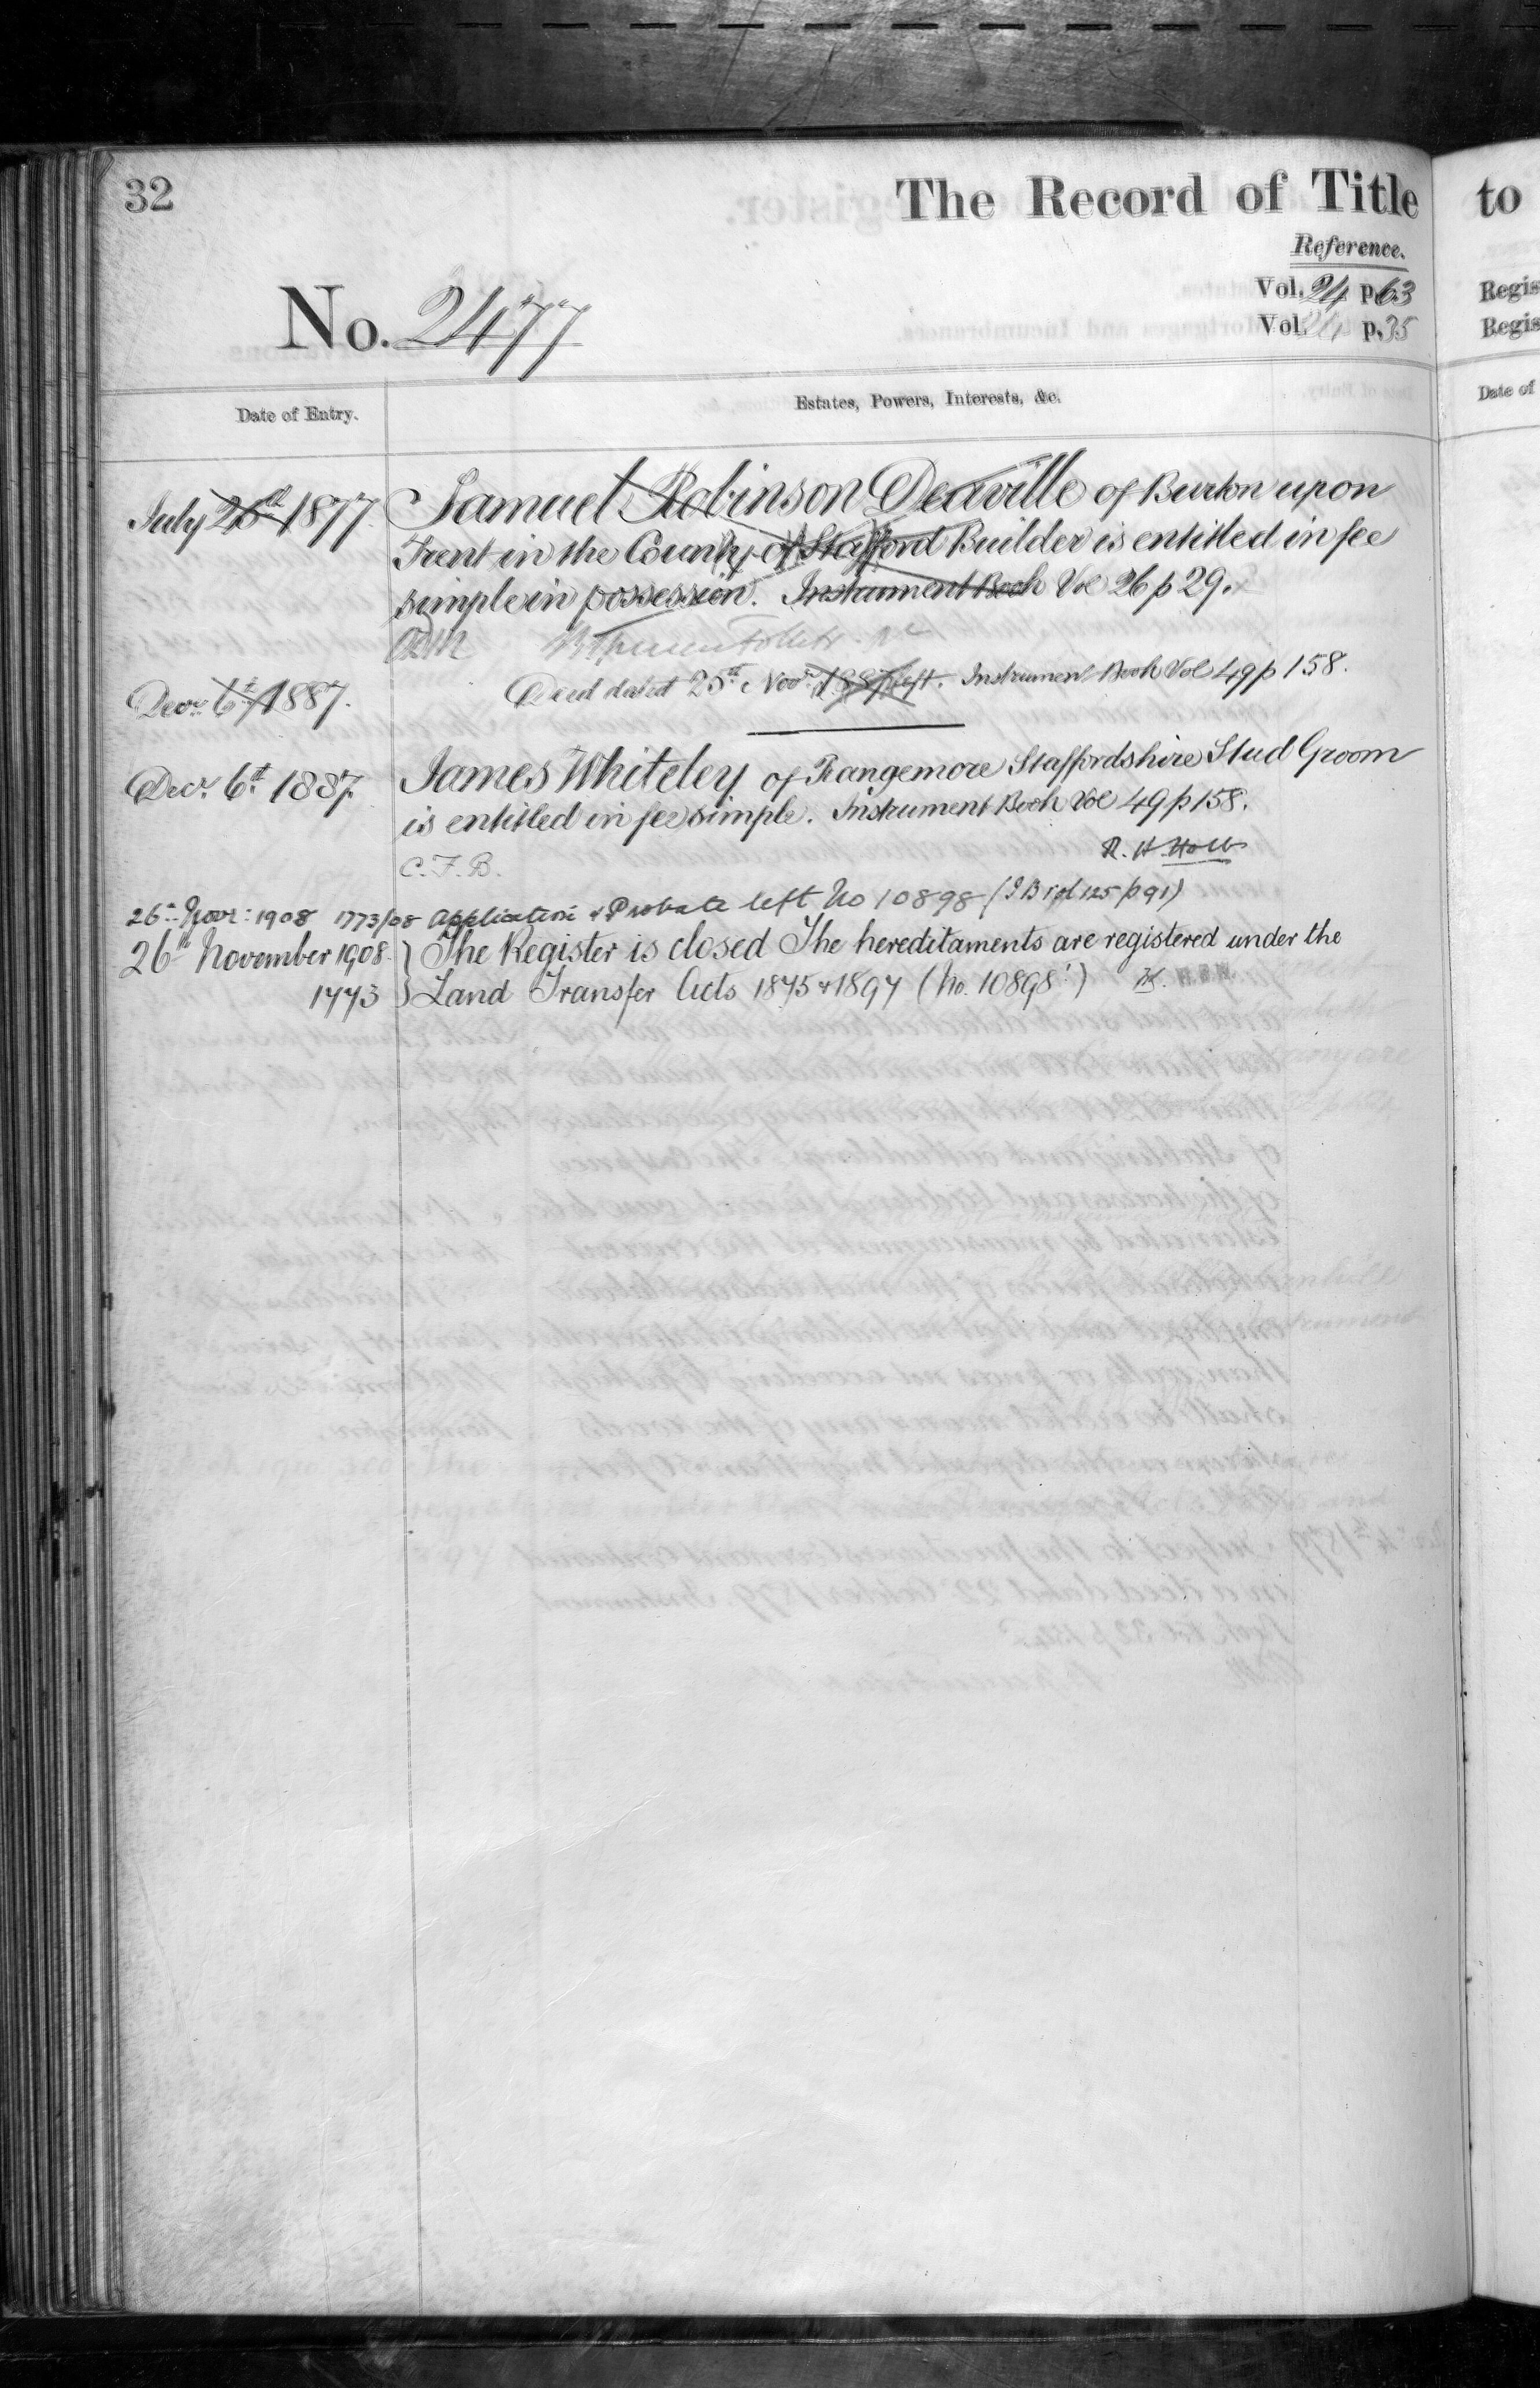 32
The Record of Title
to
Reference.
No. 2477
Vol. 24 p. 63
Regis
Vol. 24 p. 35
Regis
Date of Entry.
Estates, Powers, Interests, &c.
Date of
July 25th 1877 Samuel Robinson Deaville of Burton upon
Trent in the County of Stafford Builder is entitled in fee
simple in possession. Instrument Book Vol 26 p 29.
Decr. 6th 1887. Deed dated 25th Novr. 1887 left. Instrument Book Vol 49 p 158.
Decr. 6th 1887. James Whiteley of Rangemore Staffordshire Stud Groom
is entitled in fee simple. Instrument Book Vol 49 p 158.
R. H. Holt
C. F. B.
26th Novr: 1908 1773/08 Application & Probate left No 10898 (I B vol 125 p 91)
26th November 1908 } The Register is closed The hereditaments are registered under the
1773 } Land Transfer Acts 1875 & 1897 (No. 10898)